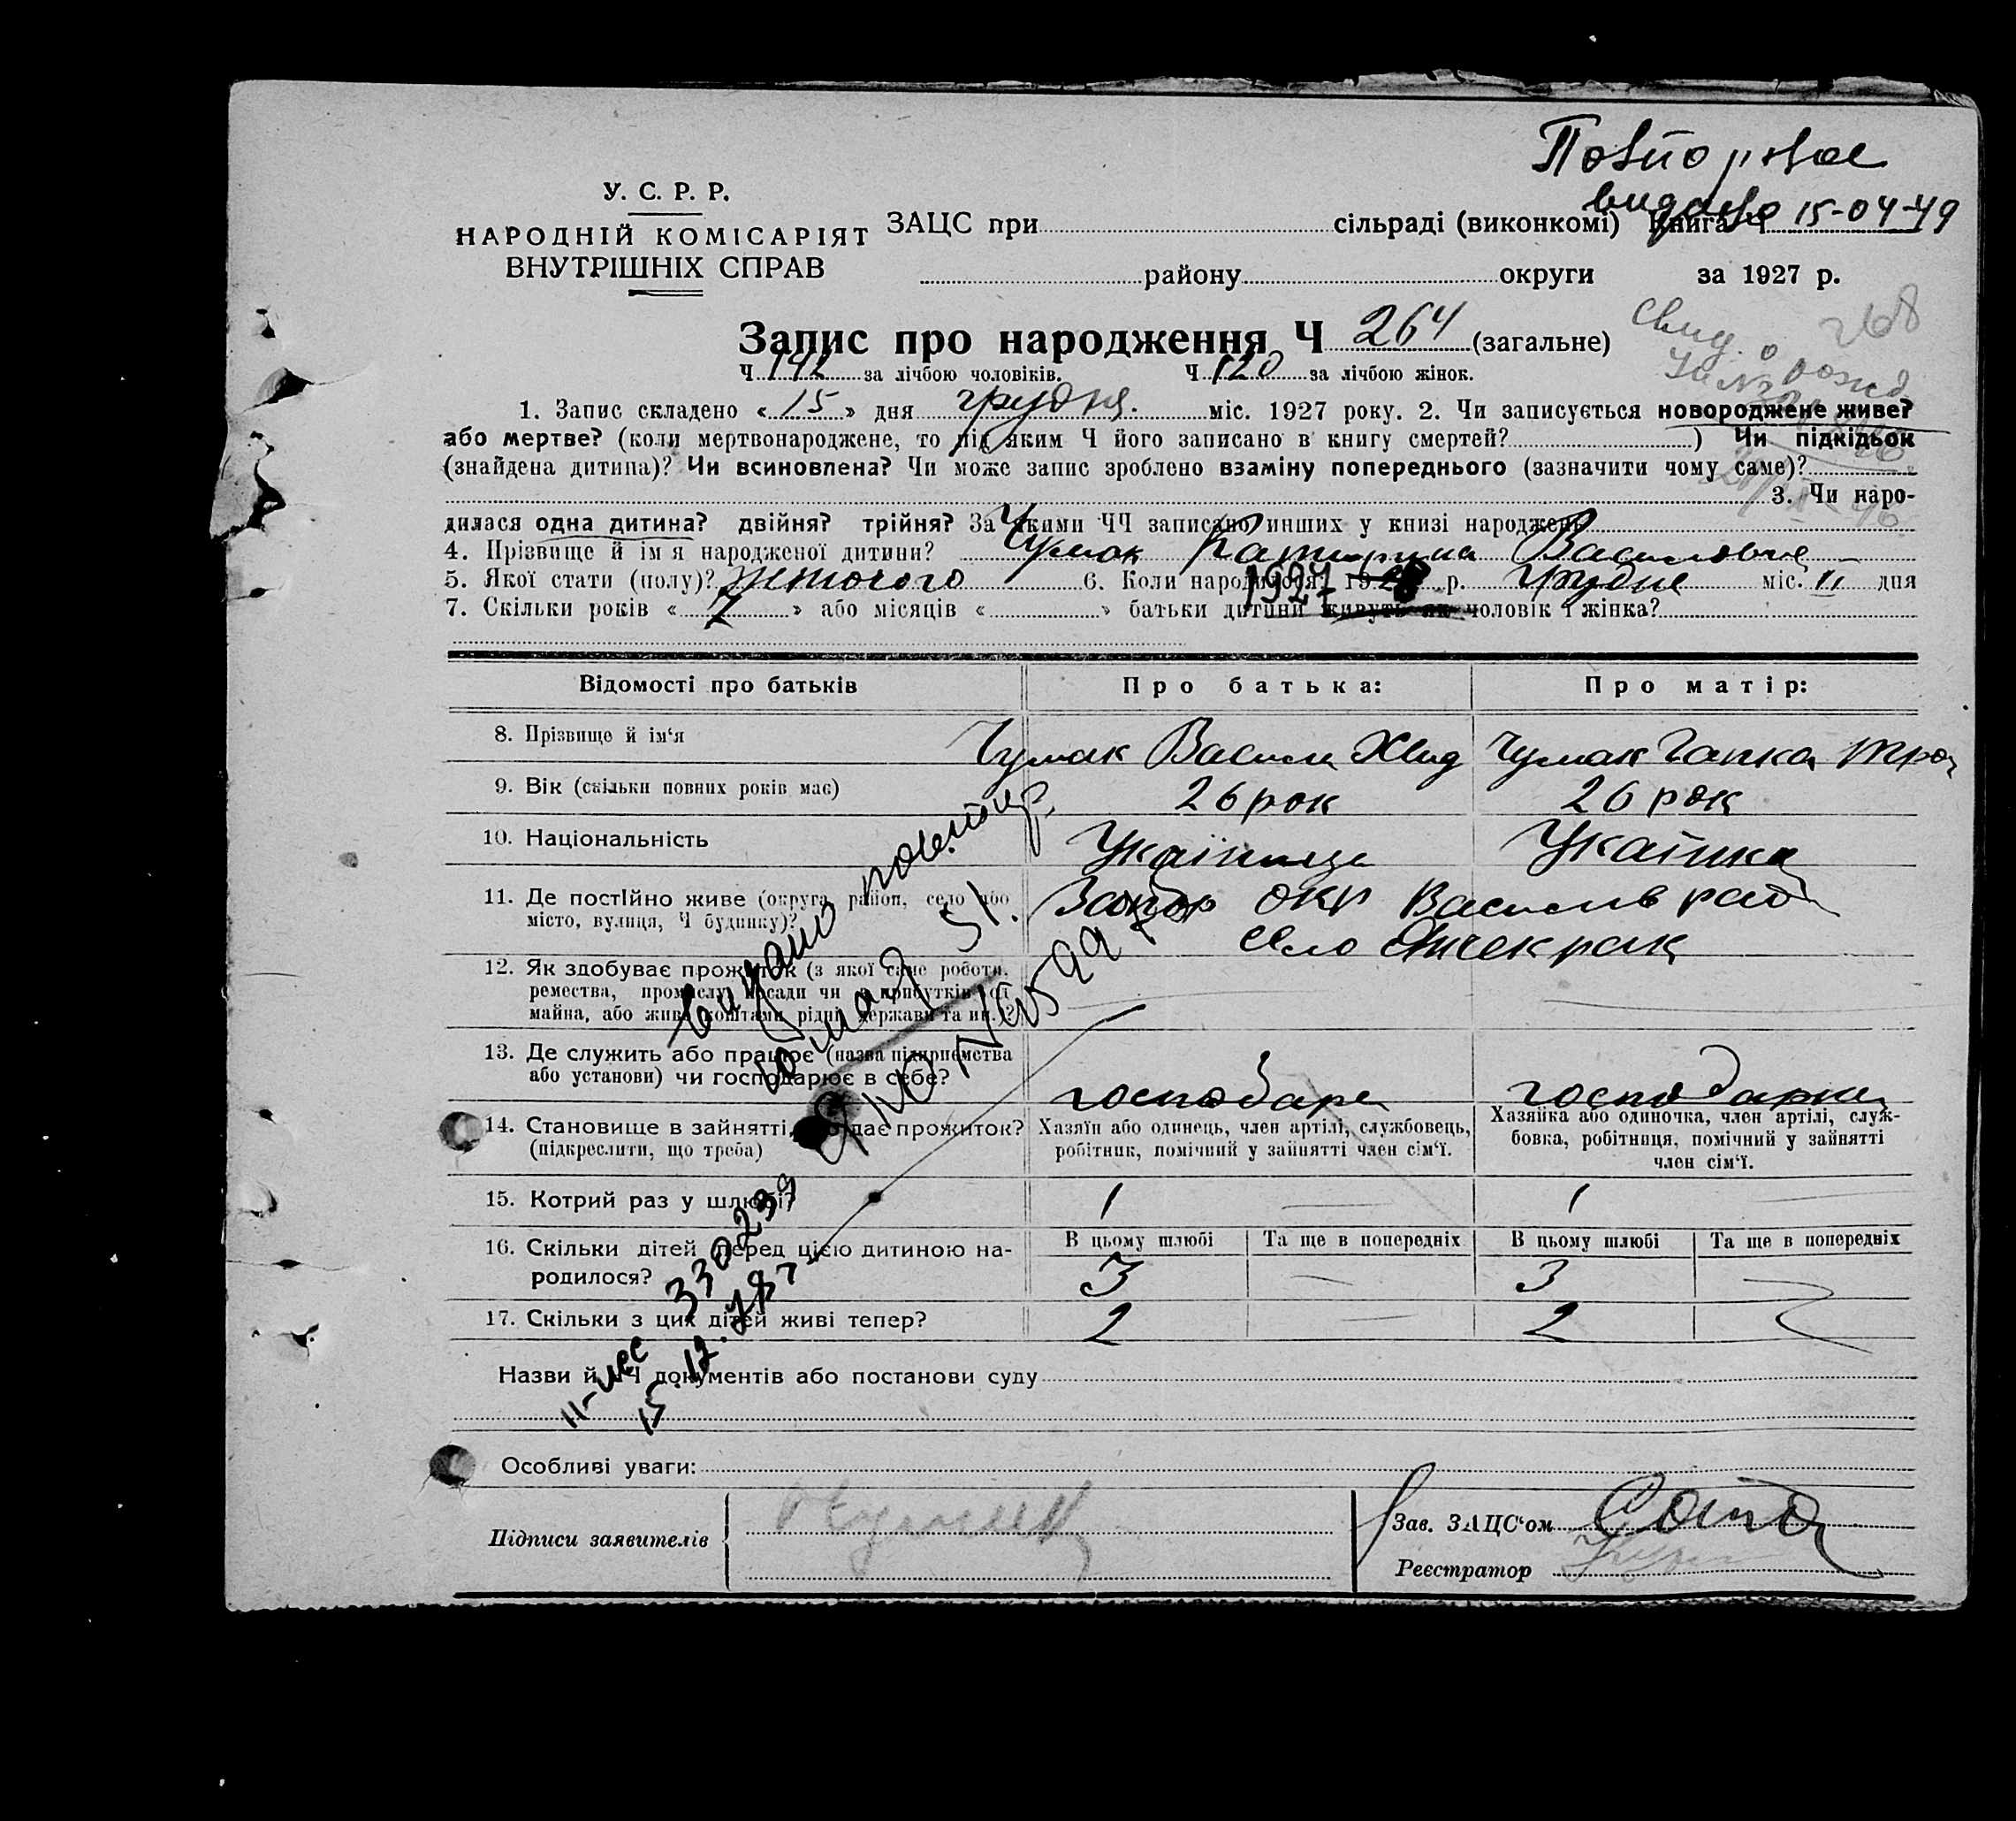 Повторное
видано 15-04-49
У. С. Р. Р.
НАРОДНІЙ КОМІСАРІЯТ
ВНУТРІШНІХ СПРАВ
ЗАЦС при сільраді (виконкомі) Книга Ч
району округи за 1927 р.
268
Запис про народження Ч 264 (загальне)
Свид. о рожд.
Ч 142 за лічбою чоловіків. Ч 120 за лічбою жінок.
1. Запис складено « 15 » дня грудня міс. 1927 року. 2. Чи записується новороджене живе?
або мертве? (коли мертвонароджене, то під яким Ч його записано в книгу смертей? ) Чи підкідьок
(знайдена дитина)? Чи всиновлена? Чи може запис зроблено взаміну попереднього (зазначити чому саме)?
3. Чи наро-
дилася одна дитина? двійня? трійня? За якими ЧЧ записано инших у книзі народжень
4. Прізвище й ім я народженої дитини? Чумак Катирина Василовне
5. Якої стати (полу)? жиночого 6. Коли народилося? 1927 192 р. грудне міс. 11 дня
7. Скільки років « 7 » або місяців « » батьки дитини живуть як чоловік і жінка?
Відомості про батьків Про батька: Про матір:
8. Прізвище й ім‘я Чумак Васили Хвид Чумак Гапка Троц
9. Вік (скільки повних років має) 26 рок 26 рок
10. Національність Укаїнець Укаїнка
11. Де постійно живе (округа, район, село або Запор окр Василив рай
місто, вулиця, Ч будинку)? село Янчекрак
12. Як здобуває прожиток (з якої саме роботи,
ремества, промислу, посади чи з прибутків од
майна, або живе коштами рідні, держави та ин.)?
13. Де служить або працює (назва підприємства
або установи) чи господарює в себе? господаре господарка
14. Становище в зайнятті, що дає прожиток? Хазяїн або одинець, член артілі, службовець, Хазяйка або одиночка, член артілі, служ-
(підкреслити, що треба) робітник, помічний у зайнятті член сім‘ї. бовка, робітниця, помічний у зайнятті
член сім‘ї.
15. Котрий раз у шлюбі? 1 — 1 —
16. Скільки дітей перед цією дитиною на- В цьому шлюбі Та ще в попередніх В цьому шлюбі Та ще в попередніх
родилося? 3 — 3 —
17. Скільки з цих дітей живі тепер? 2 — 2
видано повтор.
мая 51.
330239
Назви й ЧЧ документів або постанови суду
Особливі уваги:
Підписи заявителів
Зав. ЗАЦС‘ом
Реєстратор